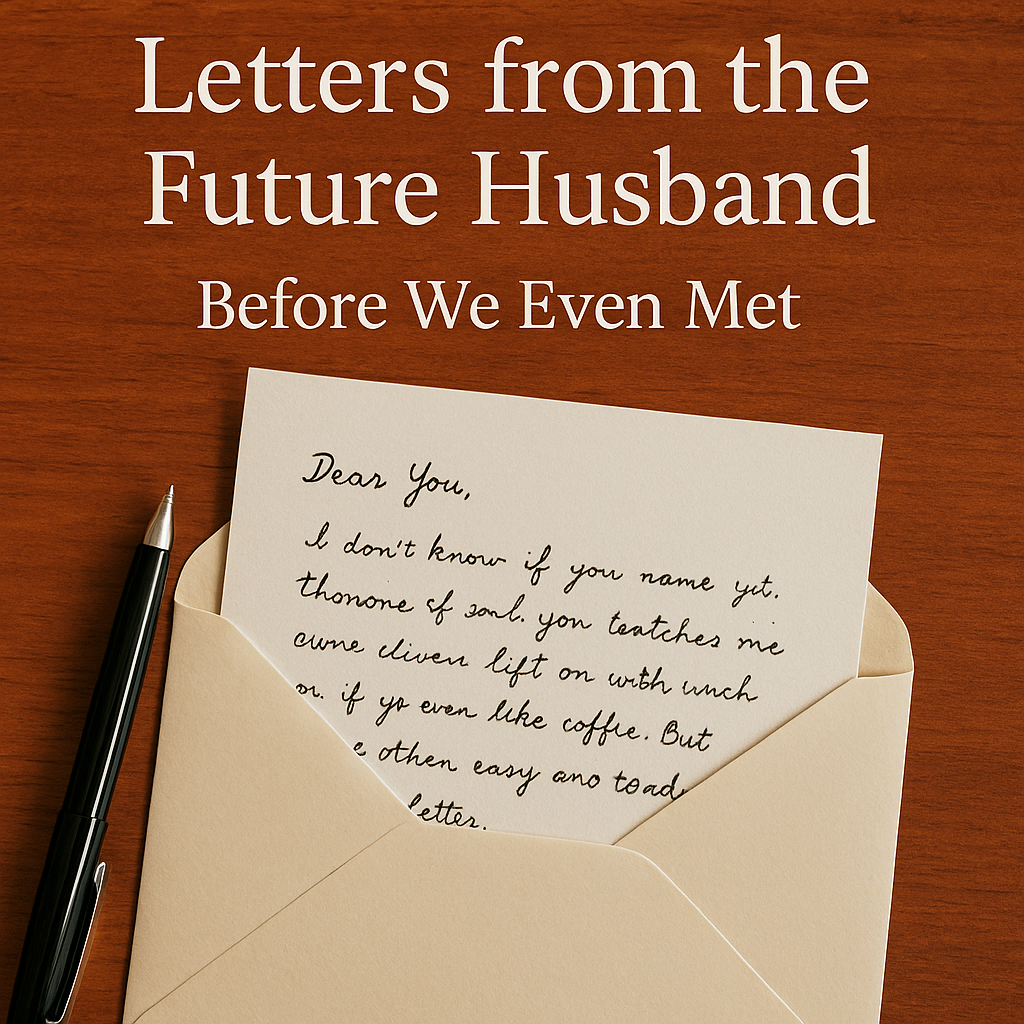 Letters from the
Future Husband
Before We Even Met
Dear You,
I don't know if you name yit.
thonone of sonl. you teatches me
cwne cliven lift on with unch
if yo even like coffie. But
othen easy ano toad
letter.